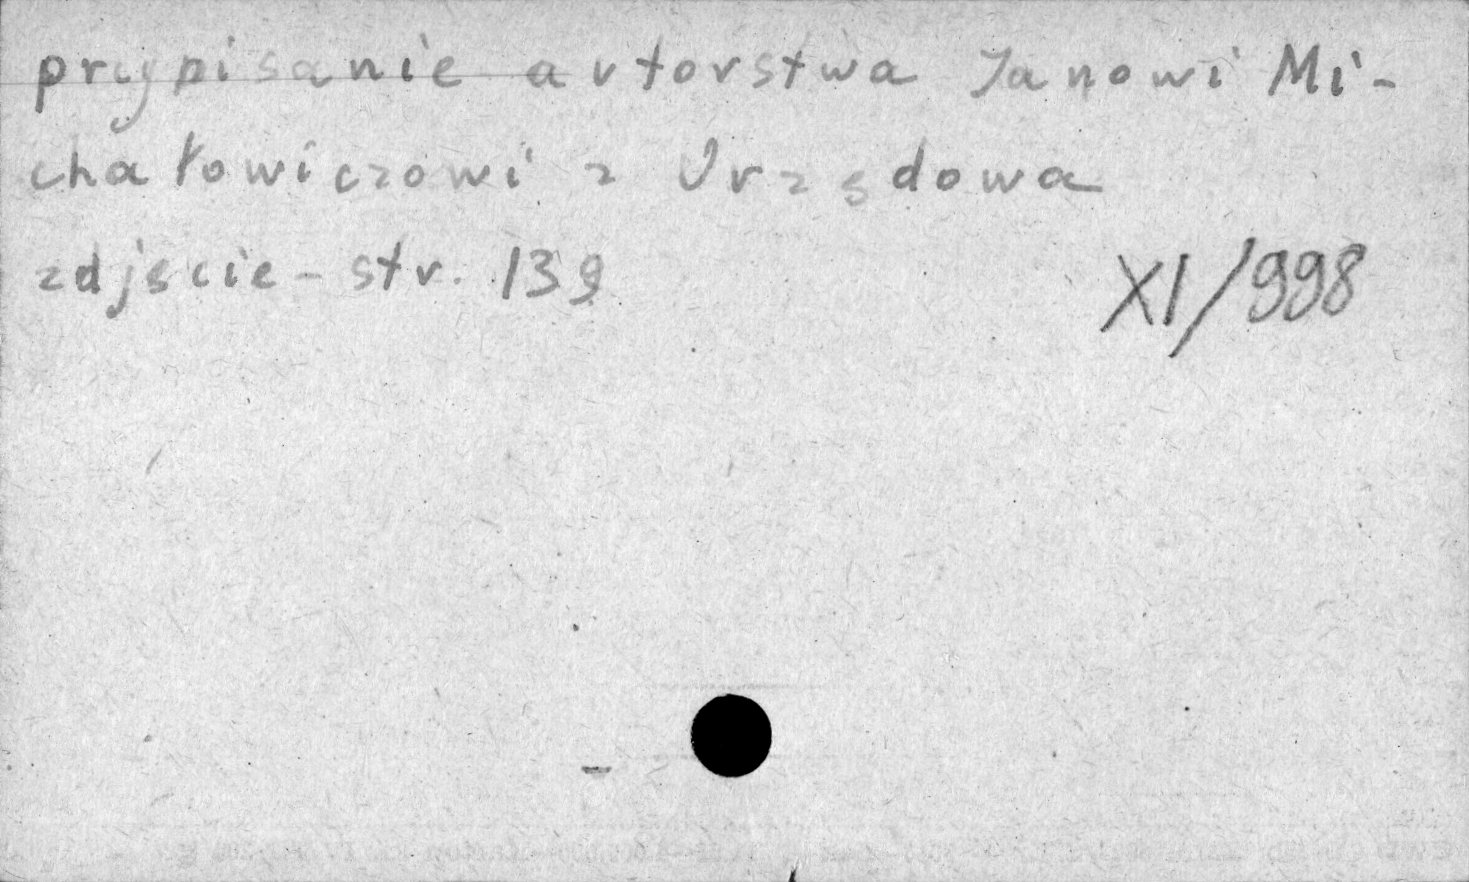 przypisanie autorstwa Janowi Mi-
chałowiczowi z Urzędowa
zdjęcie - str. 139
XI/998